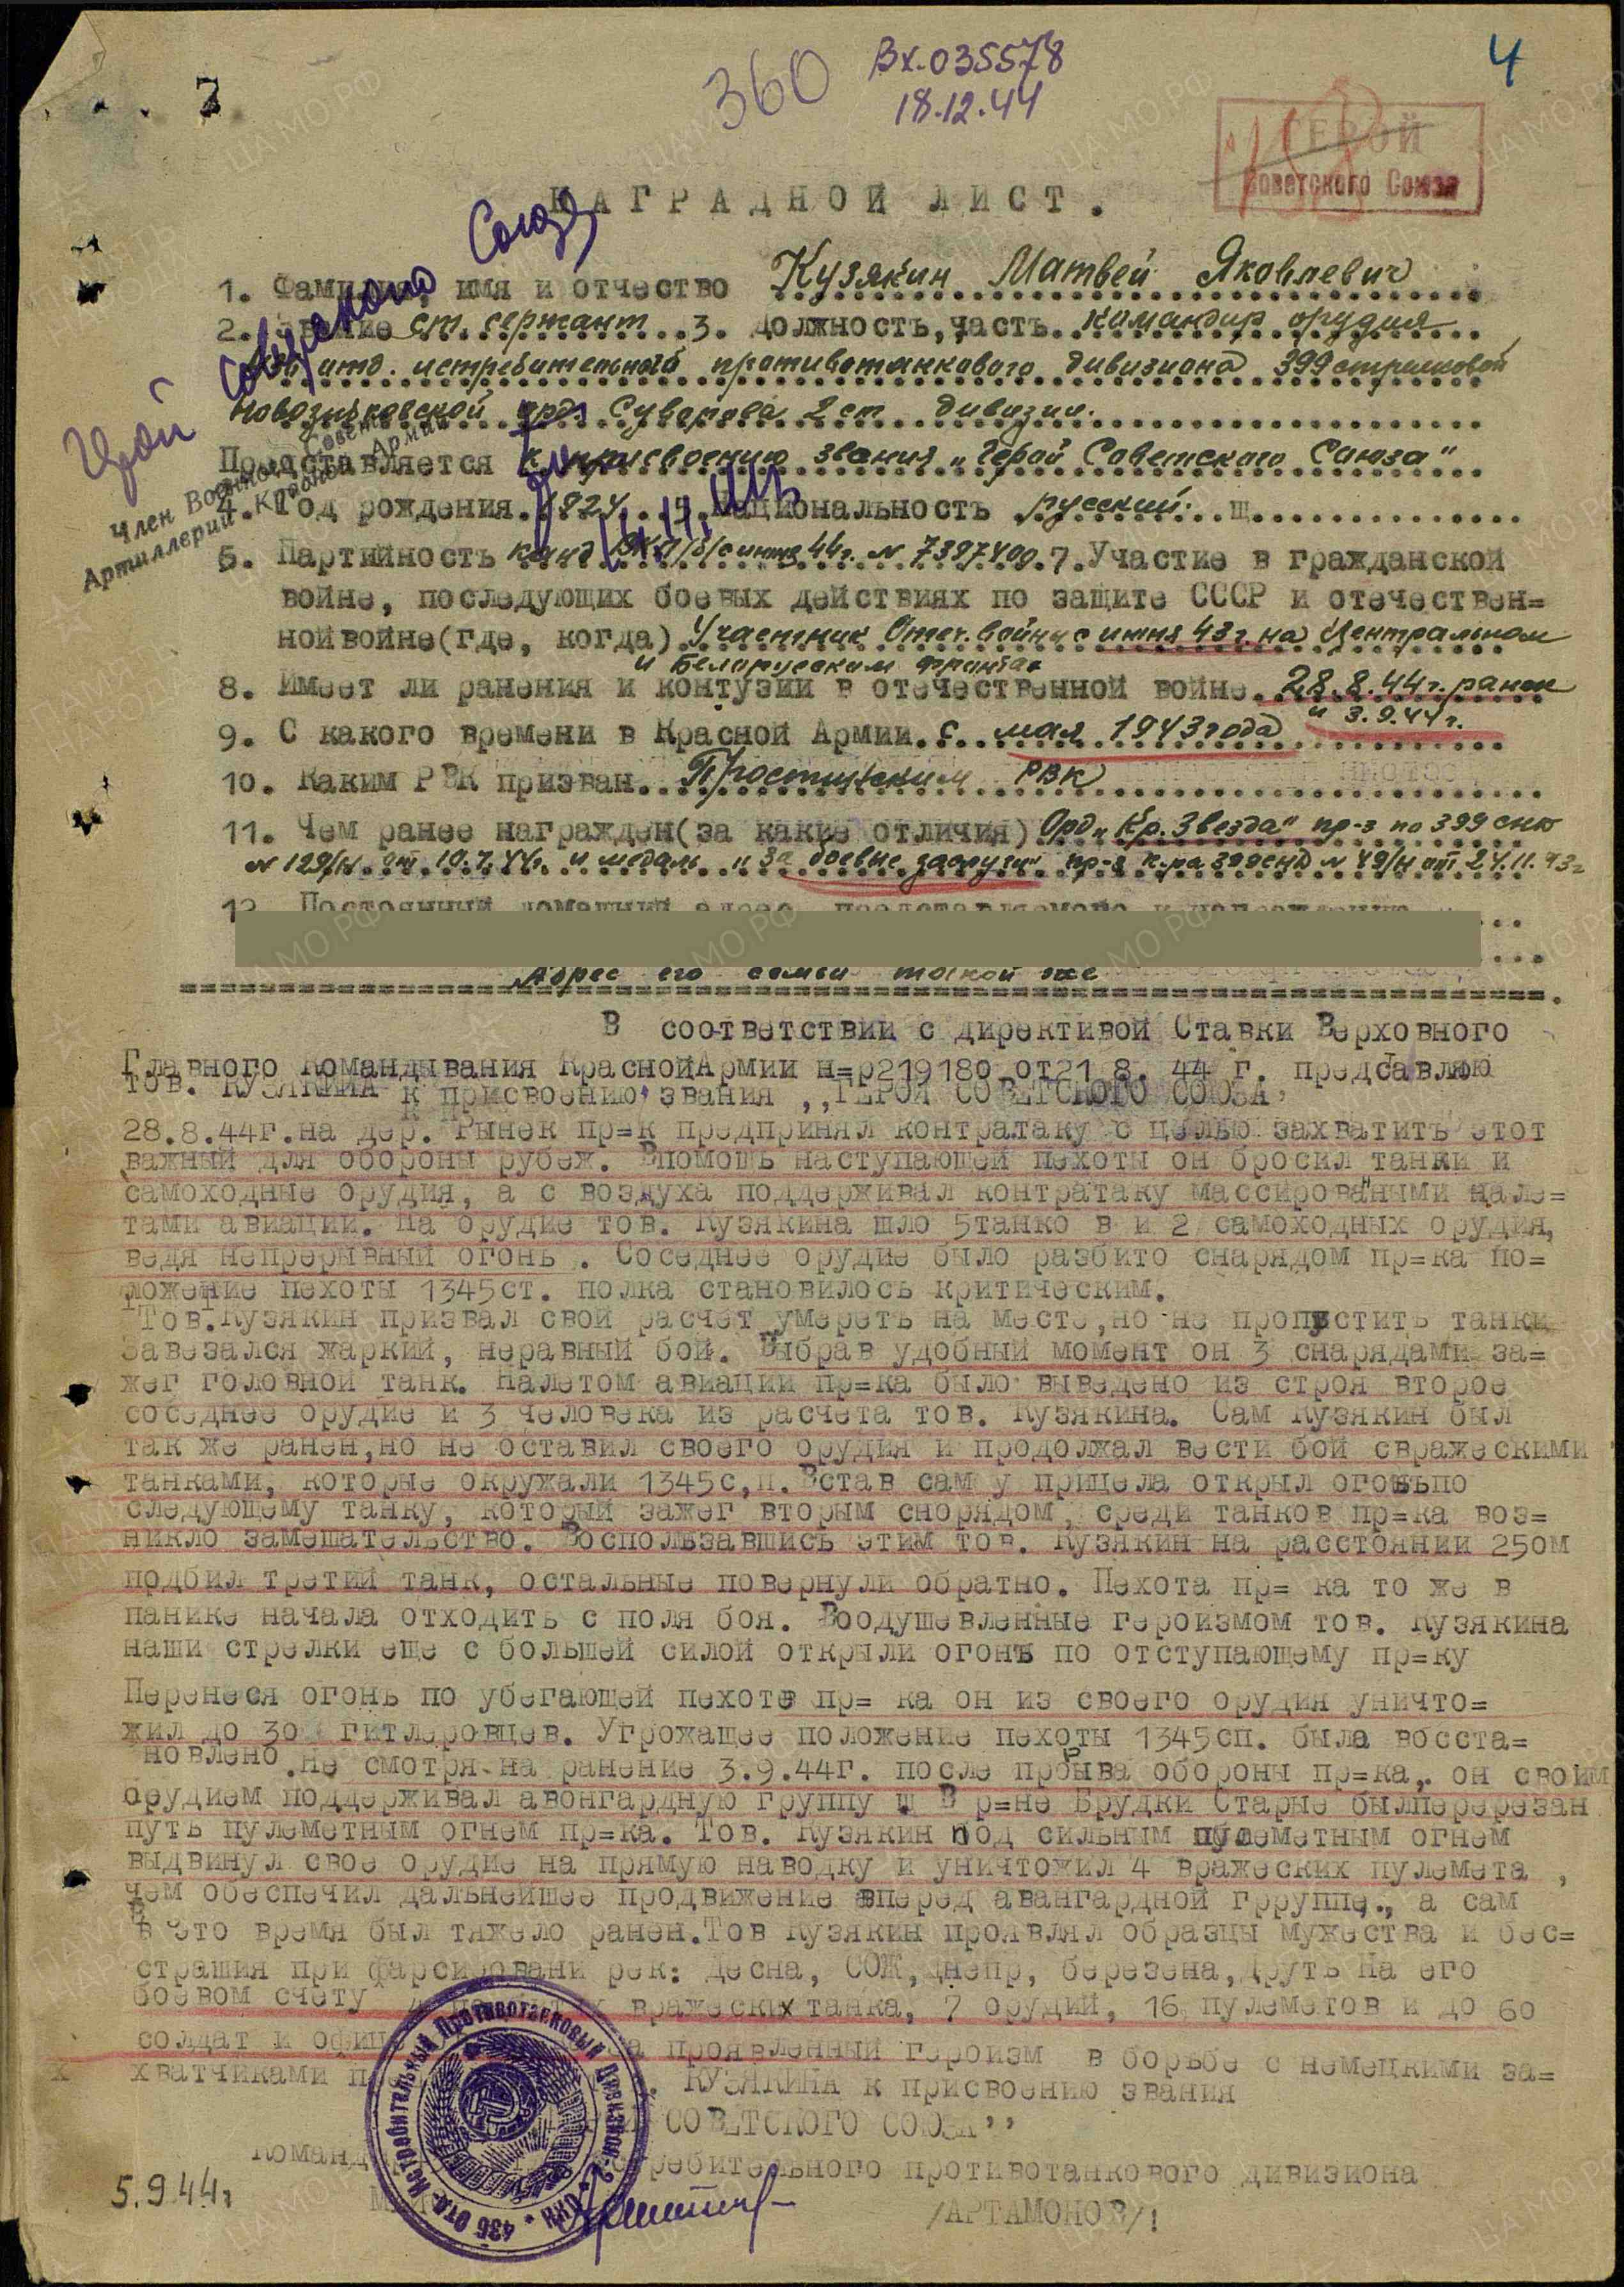 7
360
Вх.035578
18.12.44
4
ГЕРОЙ
Советского Союза
НАГРАДНОЙ ЛИСТ.
Герой Советского Союза
Член Военного Совета
Артиллерии Красной Армии
1. Фамилия, имя и отчество Кузякин Матвей Яковлевич
2. Звание ст. сержант 3. Должность, часть. командир орудия
отд. истребительный противотанкового дивизиона 399 стрелковой
Новозыбковской орд. Суворова 2 ст. дивизии.
Представляется к присвоению звания „Герой Советского Союза"
4. Год рождения. 1924. Национальность русский. Щ
6. Партийность канд. ВКП/б/ с июня 44г. N 7397400. 7. Участие в гражданской
войне, последующих боевых действиях по защите СССР и отечествен=
ной войне(где, когда) Участник Отеч. войны с июня 43г. на Центральном
и Беларусским фронтах
8. Имеет ли ранения и контузии в отечественной войне. 28.8.44г. ранен
и 3.9.44г.
9. С какого времени в Красной Армии. с мая 1943 года
10. Каким РВК призван. РВК
11. Чем ранее награжден(за какие отличия) Орд. „Кр. Звезда" пр-з по 399 сд
N 129/н от 10.7.44г. и медаль „За боевые заслуги" пр-з 399 сд N 49/н от 24.11.43г
12. Постоянный домашний адрес представляемого к награждению
Адрес его семьи такой же
В соответствии с директивой Ставки Верховного
Главного Командывания КраснойАрмии н=р219180 от21 8. 44 г. предсавлюю
тов. КУЗЯКИНА к присвоению звания ,,ГЕРОЙ СОВЕТСКОГО СОЮЗА’
28.8.44г.на дер. Рынек пр=к предпринял контратаку с целью захватить этот
важный для обороны рубеж. Впомощь наступающей пехоты он бросил танки и
самоходные орудия, а с воздуха поддерживал контратаку массированыыми нале=
тами авиации. На орудие тов. Кузякина шло 5танко в и 2 самоходных орудия,
ведя непрерывный огонь . Соседнее орудие было разбито снарядом пр=ка по=
ложение пехоты 1345ст. полка становилось критическим.
Тов.Кузякин призвал свой расчет умереть на месте,но не пропустить танки
Завезался жаркий, неравный бой. Выбрав удобный момент он 3 снарядами за=
жег головной танк. Налетом авиации пр=ка было выведено из строя второе
соседнее орудие и 3 человека из расчета тов. Кузякина. Сам Кузякин был
так же ранен,но не оставил своего орудия и продолжал вести бой свражескими
танками, которые окружали 1345с,п. Встав сам у прицела открыл огоньпо
следующему танку, который зажег вторым снорядом, среди танков пр=ка воз=
никло замешательство. Воспользавшись этим тов. Кузякин на расстоянии 250м
подбил третий танк, остальные повернули обратно. Пехота пр= ка то же в
панике начала отходить с поля боя. Воодушевленные героизмом тов. Кузякина
наши стрелки еще с большей силой открыли огонь по отступающему пр=ку
Перенеся огонь по убегающей пехоте пр= ка он из своего орудия уничто=
жил до 30 гитлеровцев. Угрожащее положение пехоты 1345сп. была восста=
новлено.Не смотря на ранение 3.9.44г. после прорыва обороны пр=ка, он своим
орудием поддерживал авонгардную группу Щ В р=не Брудки Старые былперерезан
путь пулеметным огнем пр=ка. Тов. Кузякин под сильным пулеметным огнем
выдвинул свое орудие на прямую наводку и уничтожил 4 вражеских пулемета ,
чем обеспечил дальнейшее продвижение вперед авангардной грруппе., а сам
в это время был тяжело ранен.Тов Кузякин проявлял образцы мужества и бес=
страшия при фарсировани рек: Десна, СОЖ, Днепр, березена, Друть На его
боевом счету 4 вражеских танка, 7 орудий, 16 пулеметов и до 60
солдат и офиц За проявленный героизм в борьбе с немецкими за=
х хватчиками КУЗЯКИНА к присвоению звания
СОВЕТСКОГО СОЮЗА’’
Команд требительного противотанкового дивизиона
5.9.44г
/АРТАМОНОВ/!
436 Отд. Истребительный Противотанковый Дивизион НКО